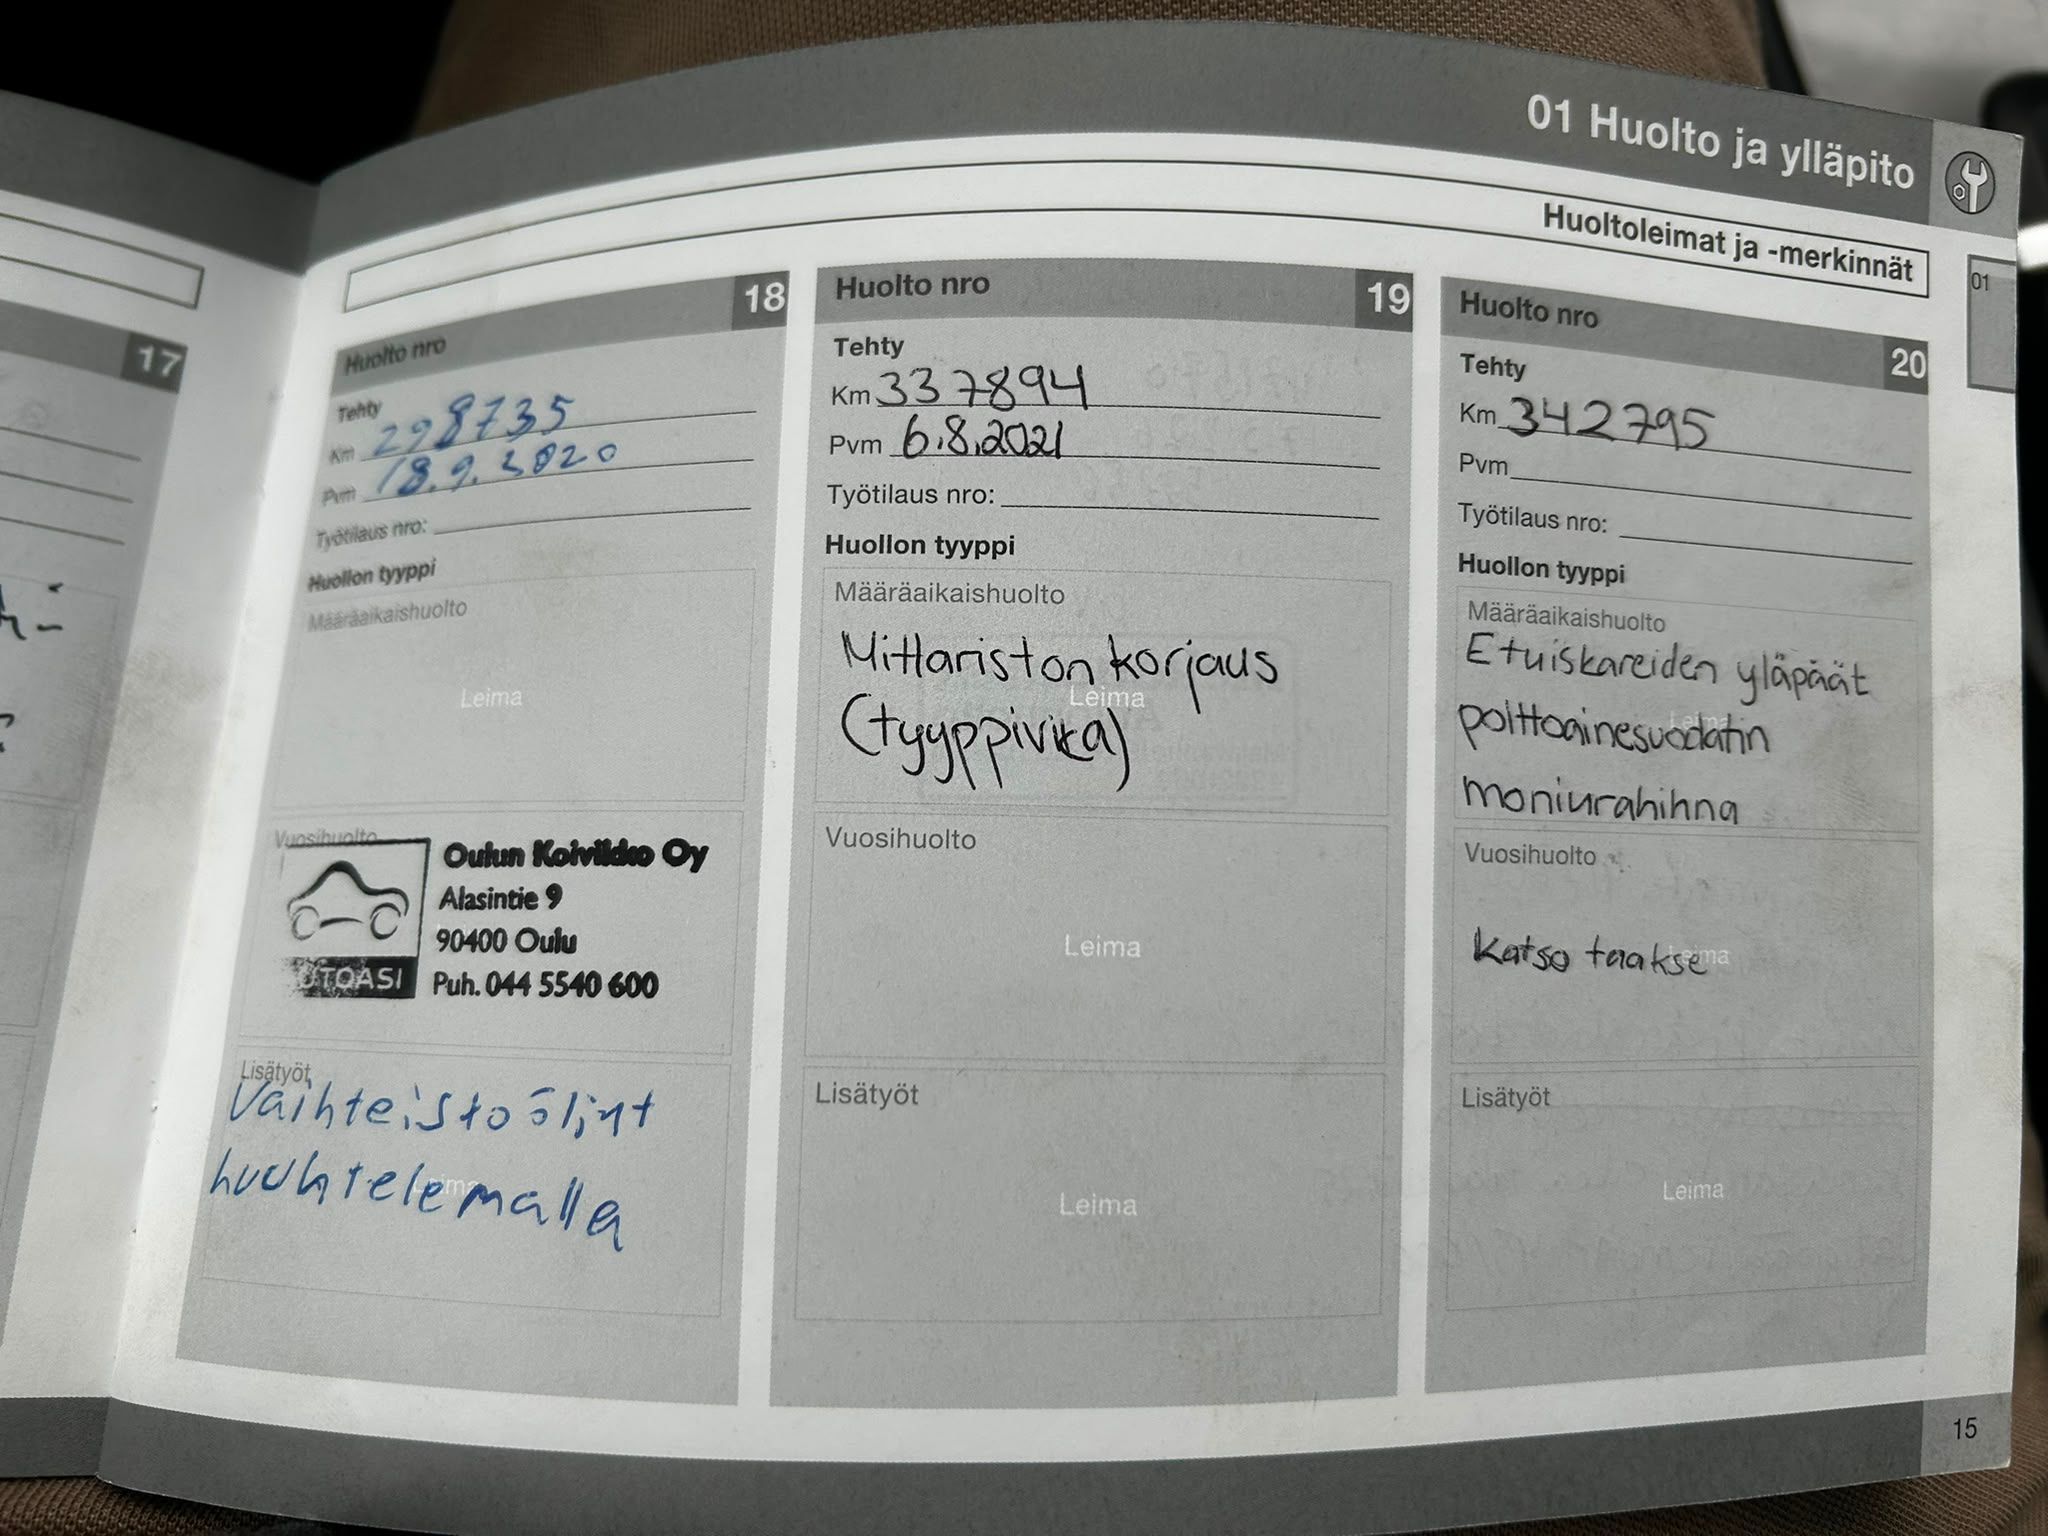 01 Huolto ja ylläpito
Huoltoleimat ja -merkinnät
01
17
18
Huolto nro
Tehty
Km 298735
Pvm 18.9.2020
Työtilaus nro:
Huollon tyyppi
Määräaikaishuolto
Leima
Vuosihuolto
Oulun Koivikko Oy
Alasintie 9
90400 Oulu
Puh. 044 5540 600
UTOASI
Lisätyöt
Vaihteistoöljyt
huuhtelemalla
Huolto nro 19
Tehty
Km 337894
Pvm 6.8.2021
Työtilaus nro:
Huollon tyyppi
Määräaikaishuolto
Mittariston korjaus
Leima
(tyyppivika)
Vuosihuolto
Leima
Lisätyöt
Leima
Huolto nro
20
Tehty
Km 342795
Pvm
Työtilaus nro:
Huollon tyyppi
Määräaikaishuolto
Etuiskareiden yläpäät
polttoainesuodatin
moniurahihna
Vuosihuolto
Katso taakse
Lisätyöt
Leima
15